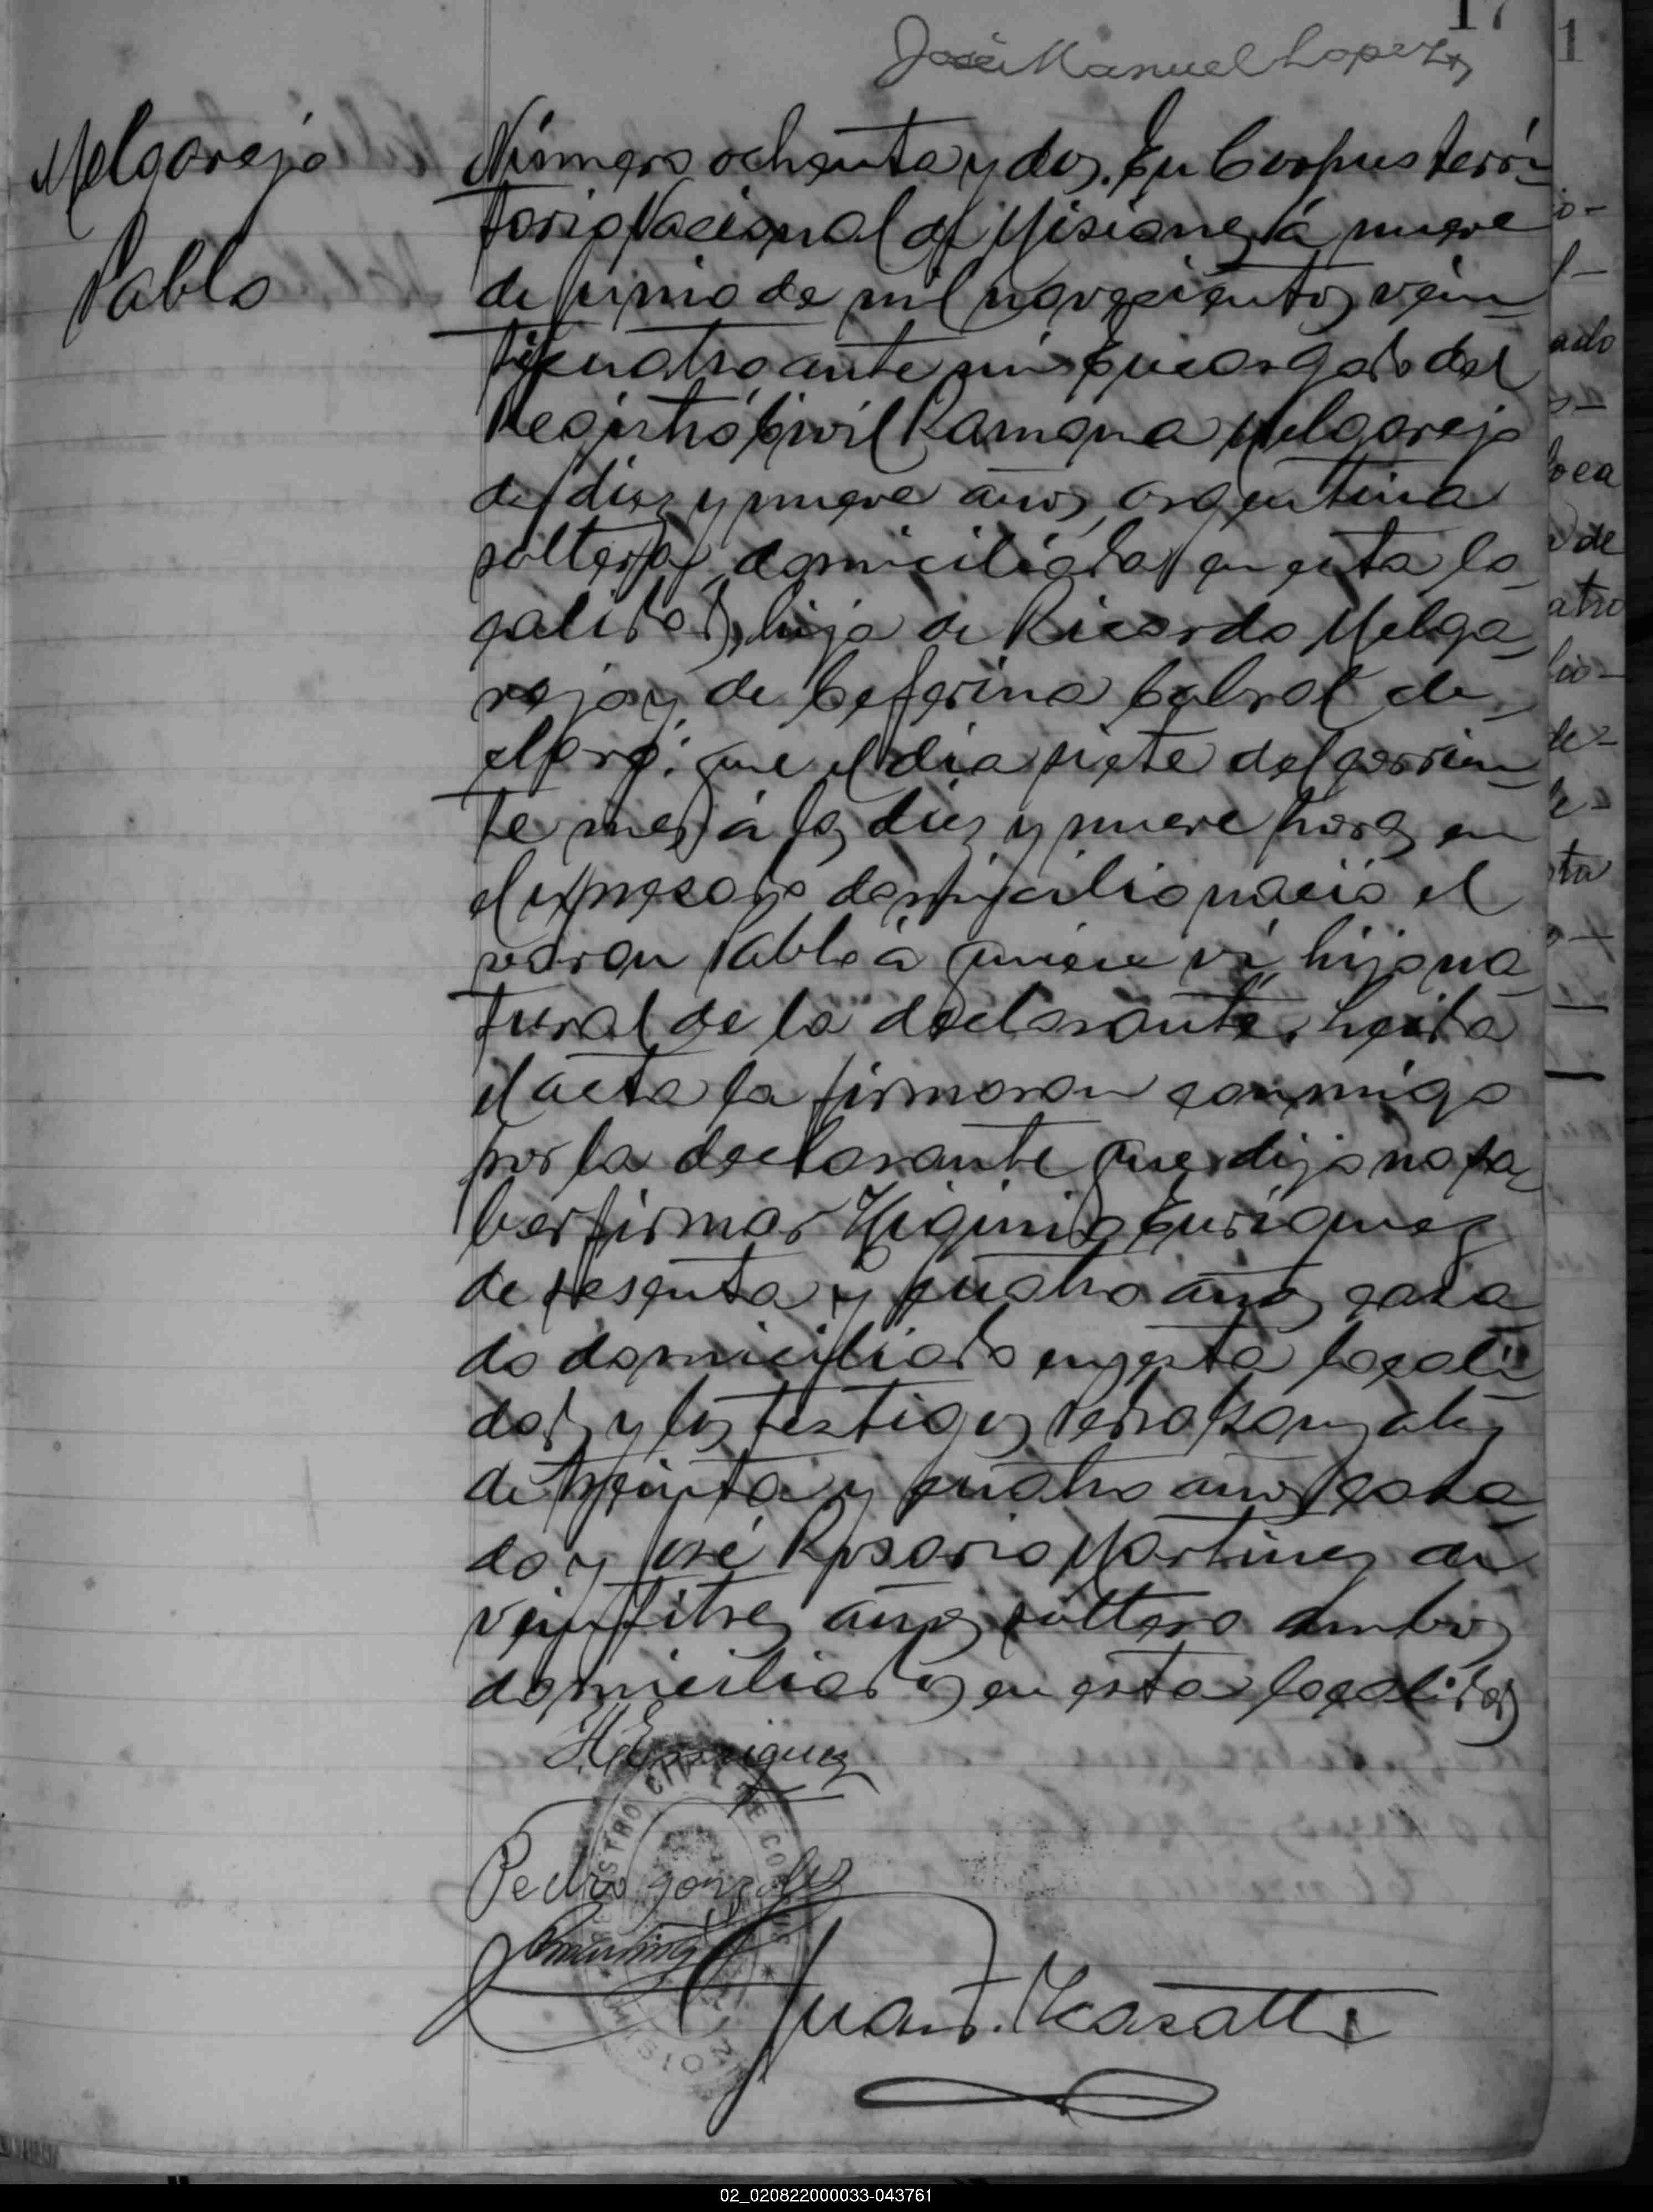 17
José Manuel Lopez
Melgarejo
Pablo
Número ochenta y dos. En Corpus terri-
torio Nacional de Misiones á nueve
de junio de mil novecientos vein-
ticuatro ante mi Encargado del
Registro Civil Ramona Melgarejo
de diez y nueve años, argentina
soltera, domiciliada en esta lo-
calidad, hija de Ricardo Melga-
rejo y de Ceferina Cabral de-
claró: que el dia siete del corrien-
te mes á las diez y nueve horas en
el expresado domicilio nació el
varon Pablo á quien vi hijo na-
tural de la declarante. Leida
el acta la firmaron conmigo
por la declarante que dijo no sa-
ber firmar Higinio Enriquez
de sesenta y cuatro años casa-
do domiciliado en esta locali-
dad y los testigos Pedro Gonzalez
de treinta y cuatro años casa-
do y José Rosario Martinez de
veintitres años soltero ambos
domiciliados en esta localidad
H. Enriquez
Pedro Gonzalez
Juan F.
REGISTRO CIVIL DE CORPUS
MISIONES
1
o-
l-
ado
s-
oca
de
atro
lio-
de-
le-
sta
02_020822000033-043761